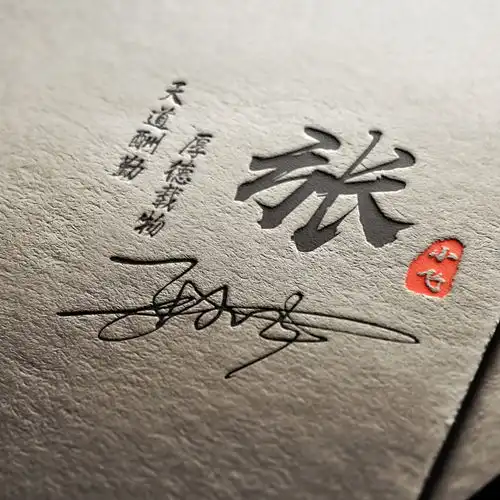 张
小七
厚德载物
天道酬勤